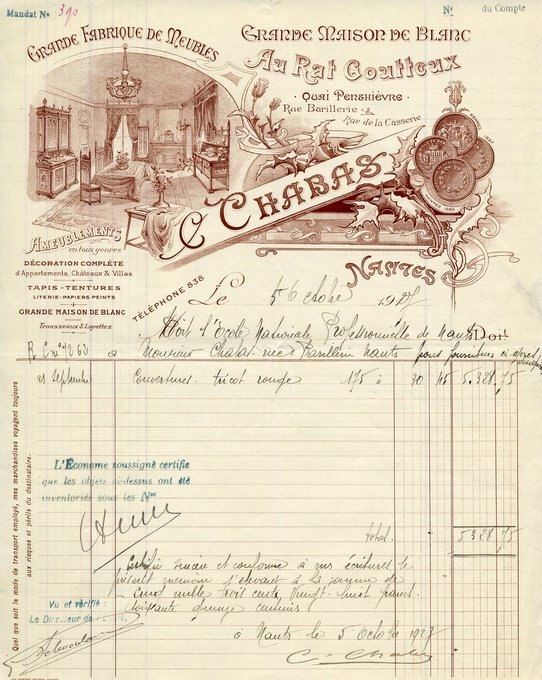 Mandat No 390
No du Compte
Grande Fabrique de Meubles
Grande Maison de Blanc
Au Rat Goutteux
Quai Penthièvre
Rue Barillerie &
Rue de la Casserie
C. Chabas
Nantes
Ameublements
en tous genres
Décoration complète
d'Appartements, Châteaux & Villas
Tapis - Tentures
Literie - Papiers peints
Grande Maison de Blanc
Trousseaux & Layettes
Téléphone 838
Le 5 Octobre 1927
Doit l'Ecole Nationale Professionnelle de Nantes Doit
à Monsieur Chabas rue Barillerie Nantes pour fournitures ci-après
21 Septembre Couvertures tricot rouge 175 à 30 45 5.328,75
L'Économe soussigné certifie
que les objets ci-dessus ont été
inventoriés sous les Nos
total 5328 75
Certifié sincère et conforme à nos écritures le
présent mémoire s'élevant à la somme de
Cinq mille trois cents vingt huit francs
soixante quinze centimes
Vu et vérifié:
Le Directeur de l'École,
à Nantes le 5 Octobre 1927
C. Chabas
Quel que soit le mode de transport employé, mes marchandises voyagent toujours
aux risques et périls du destinataire.